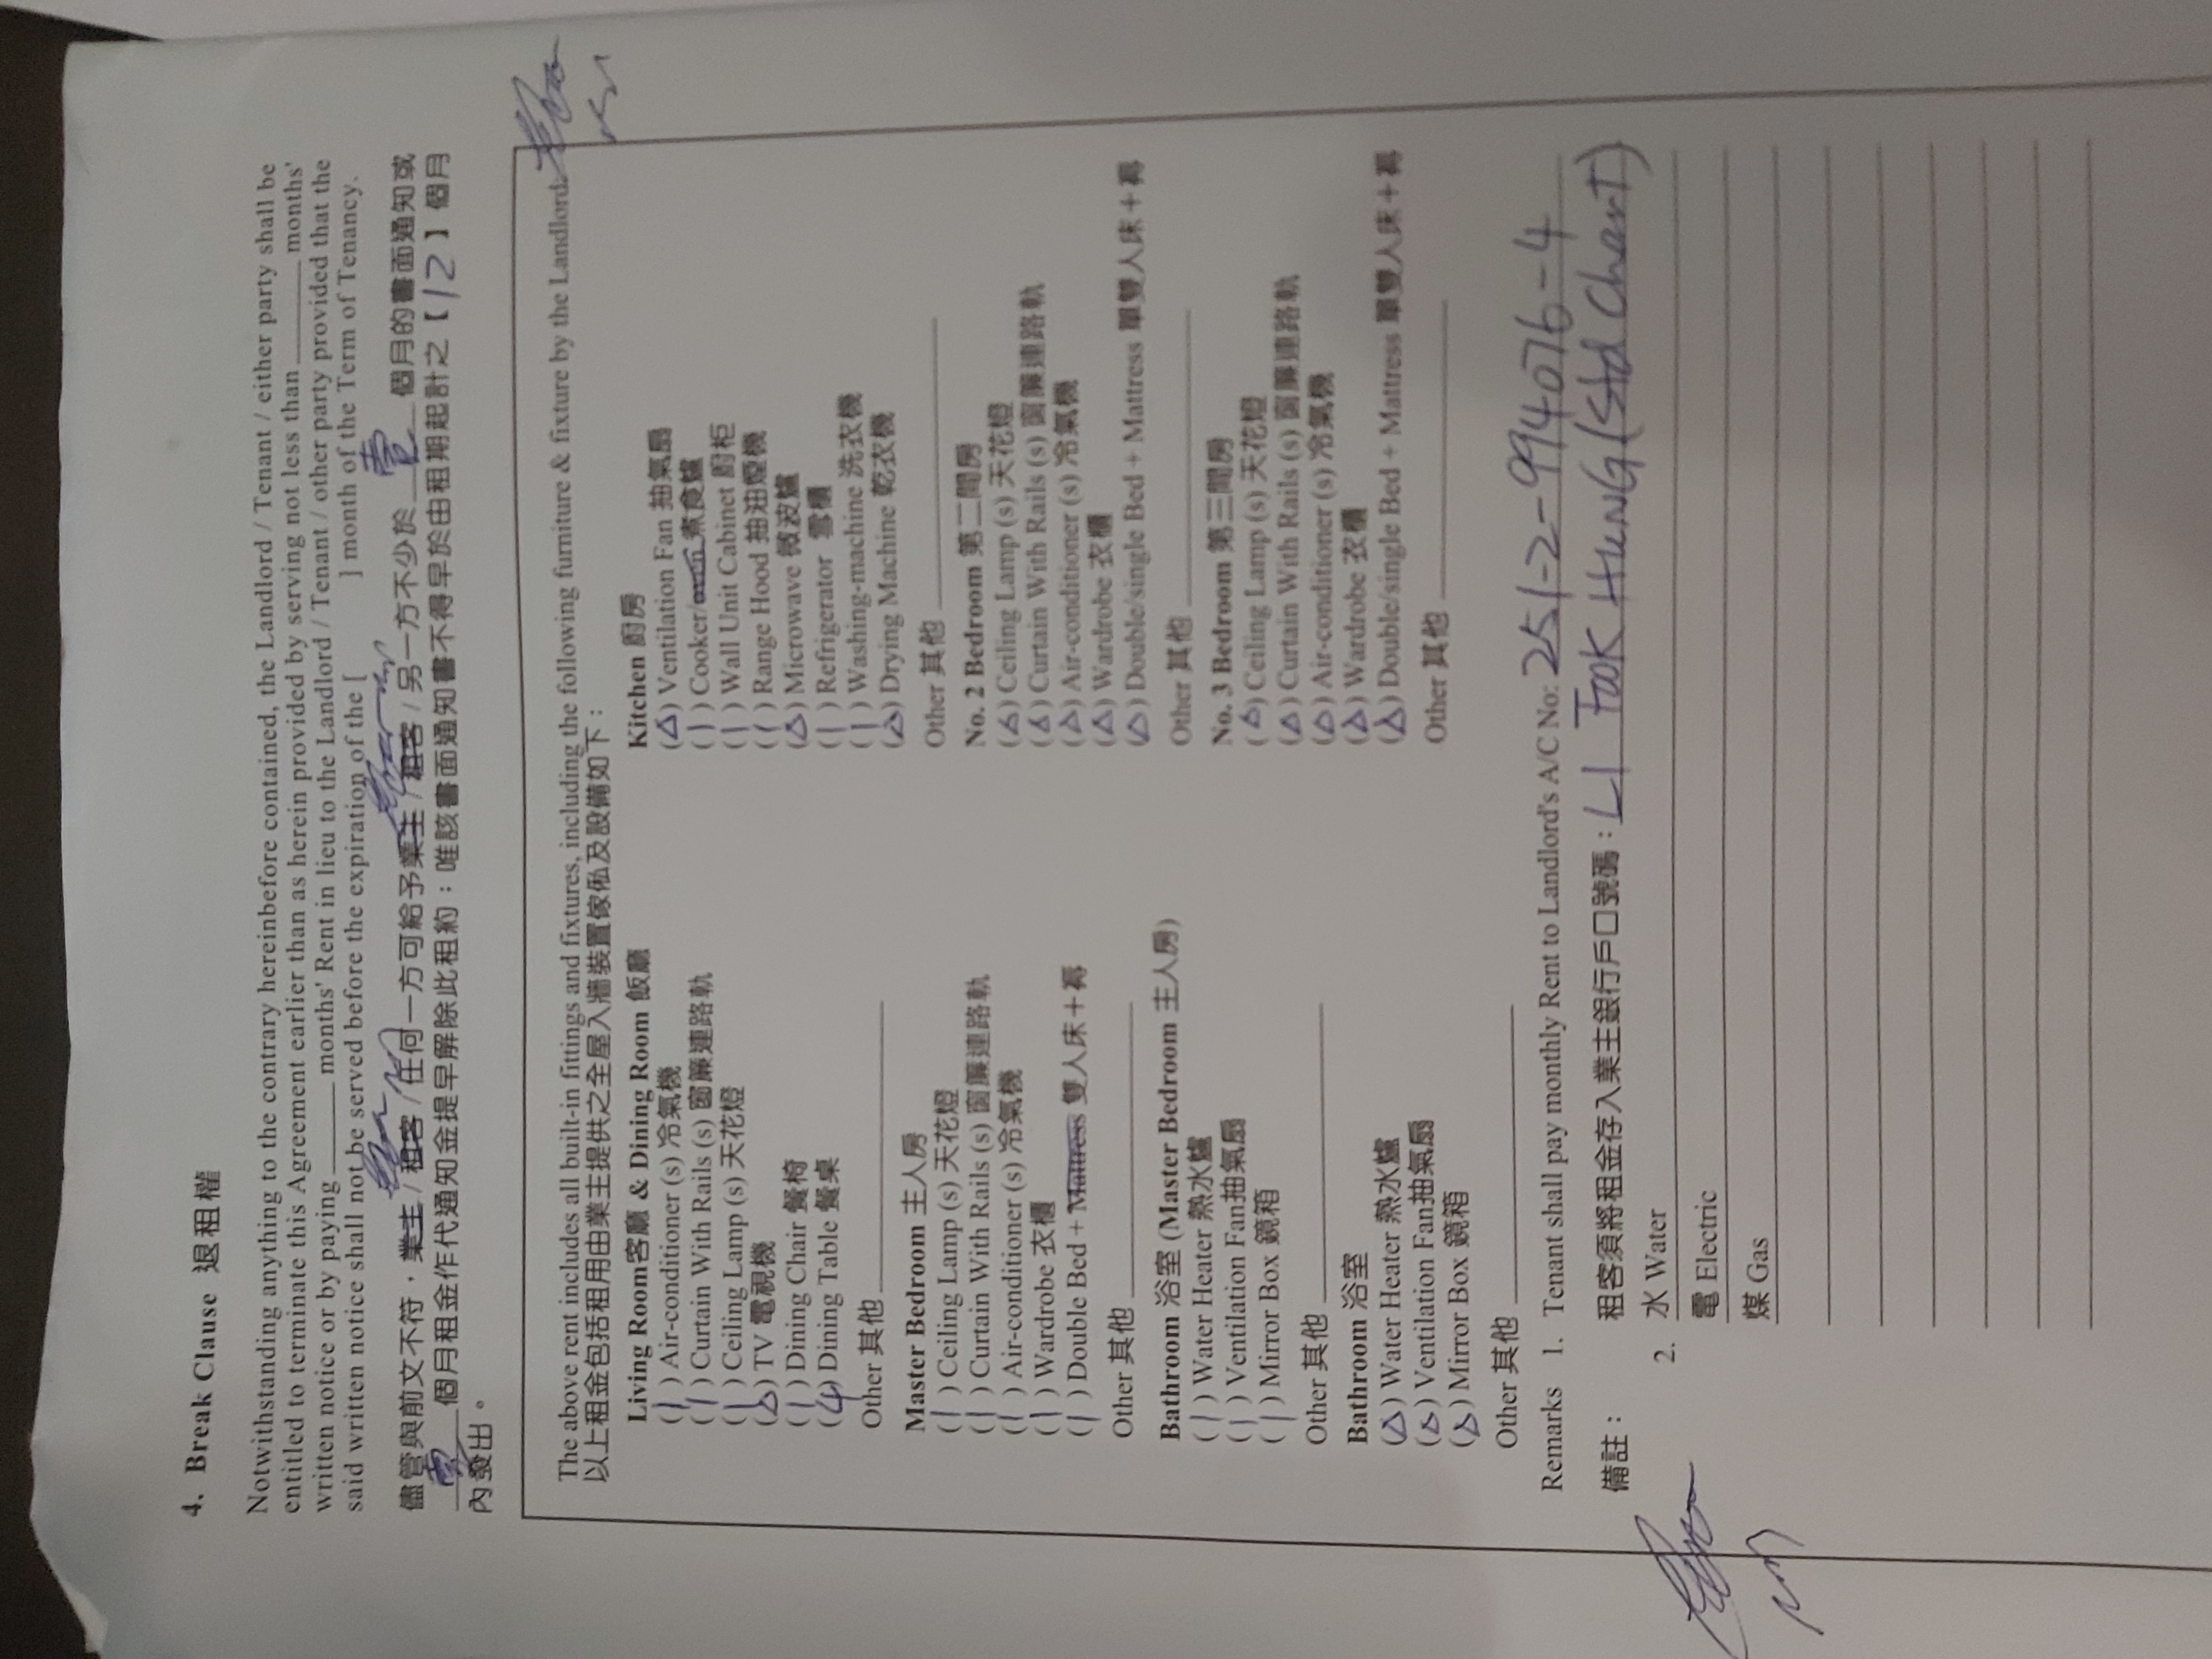 4. Break Clause 退租權
Notwithstanding anything to the contrary hereinbefore contained, the Landlord / Tenant / either party shall be
entitled to terminate this Agreement earlier than as herein provided by serving not less than ______ months'
written notice or by paying ______ months' Rent in lieu to the Landlord / Tenant / other party provided that the
said written notice shall not be served before the expiration of the [ ] month of the Term of Tenancy.
儘管與前文不符，業主 / 租客 / 任何一方可給予業主 / 租客 / 另一方不少於 壹 個月的書面通知或
壹 個月租金作代通知金提早解除此租約；唯該書面通知書不得早於由租期起計之【12】個月
內發出。
The above rent includes all built-in fittings and fixtures, including the following furniture & fixture by the Landlord:
以上租金包括租用由業主提供之全屋入牆裝置傢俬及設備如下：
Living Room客廳 & Dining Room 飯廳
( 1 ) Air-conditioner (s) 冷氣機
( 1 ) Curtain With Rails (s) 窗簾連路軌
( 1 ) Ceiling Lamp (s) 天花燈
(△) TV 電視機
( 1 ) Dining Chair 餐椅
(4) Dining Table 餐桌
Other 其他
Master Bedroom 主人房
( 1 ) Ceiling Lamp (s) 天花燈
( 1 ) Curtain With Rails (s) 窗簾連路軌
( 1 ) Air-conditioner (s) 冷氣機
( 1 ) Wardrobe 衣櫃
( 1 ) Double Bed + Mattress 雙人床＋褥
Other 其他
Bathroom 浴室 (Master Bedroom 主人房)
( 1 ) Water Heater 熱水爐
( 1 ) Ventilation Fan抽氣扇
( 1 ) Mirror Box 鏡箱
Other 其他
Bathroom 浴室
(△) Water Heater 熱水爐
(△) Ventilation Fan抽氣扇
(△) Mirror Box 鏡箱
Other 其他
Kitchen 廚房
(△) Ventilation Fan 抽氣扇
( 1 ) Cooker/oven 煮食爐
( 1 ) Wall Unit Cabinet 廚柜
( 1 ) Range Hood 抽油煙機
(△) Microwave 微波爐
( 1 ) Refrigerator 雪櫃
( 1 ) Washing-machine 洗衣機
(△) Drying Machine 乾衣機
Other 其他
No. 2 Bedroom 第二間房
(△) Ceiling Lamp (s) 天花燈
(△) Curtain With Rails (s) 窗簾連路軌
(△) Air-conditioner (s) 冷氣機
(△) Wardrobe 衣櫃
(△) Double/single Bed + Mattress 單雙人床＋褥
Other 其他
No. 3 Bedroom 第三間房
(△) Ceiling Lamp (s) 天花燈
(△) Curtain With Rails (s) 窗簾連路軌
(△) Air-conditioner (s) 冷氣機
(△) Wardrobe 衣櫃
(△) Double/single Bed + Mattress 單雙人床＋褥
Other 其他
Remarks 1. Tenant shall pay monthly Rent to Landlord's A/C No: 251-2-994076-4
備註： 租客須將租金存入業主銀行戶口號碼：LI FOOK HUNG (Std Chart)
2. 水 Water
電 Electric
煤 Gas